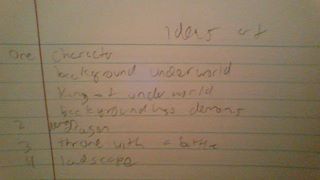 Ideas art
one character
background underworld
King of underworld
backgroundings demons
2 dragon
3 throne with a battle
4 landscape